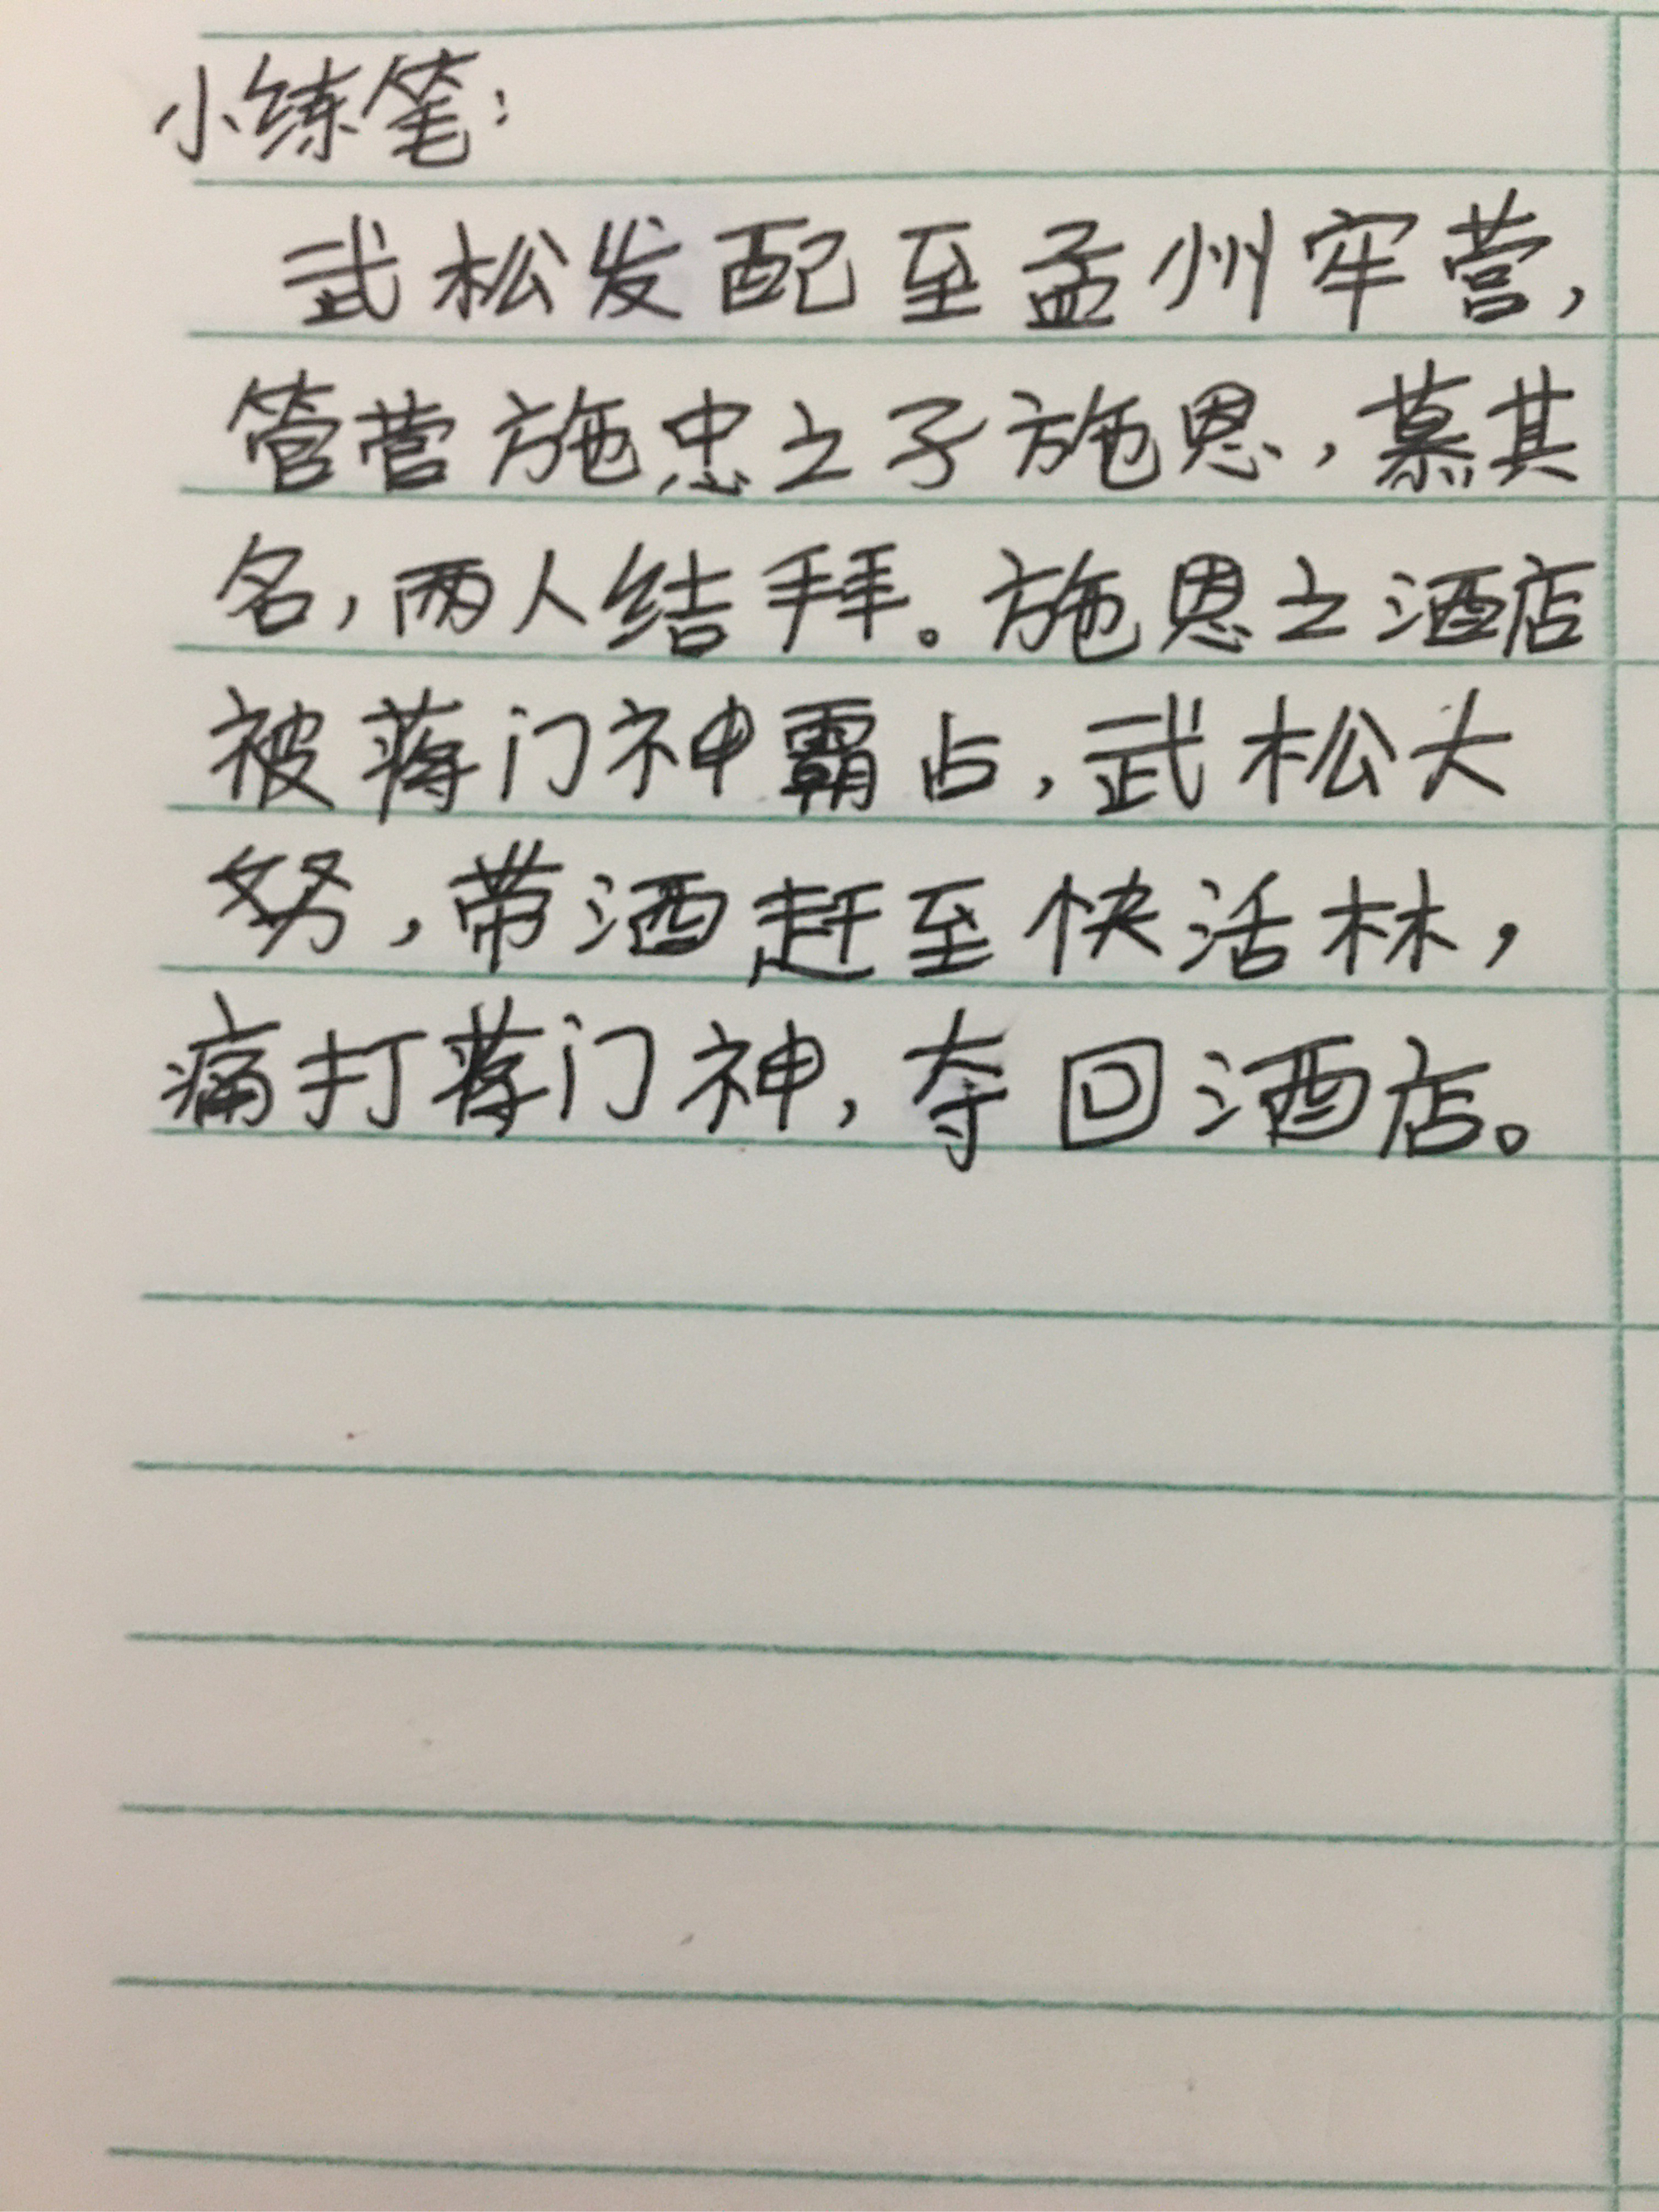 小练笔：
武松发配至孟州牢营，
管营施忠之子施恩，慕其
名，两人结拜。施恩之酒店
被蒋门神霸占，武松大
努，带酒赶至快活林，
痛打蒋门神，夺回酒店。